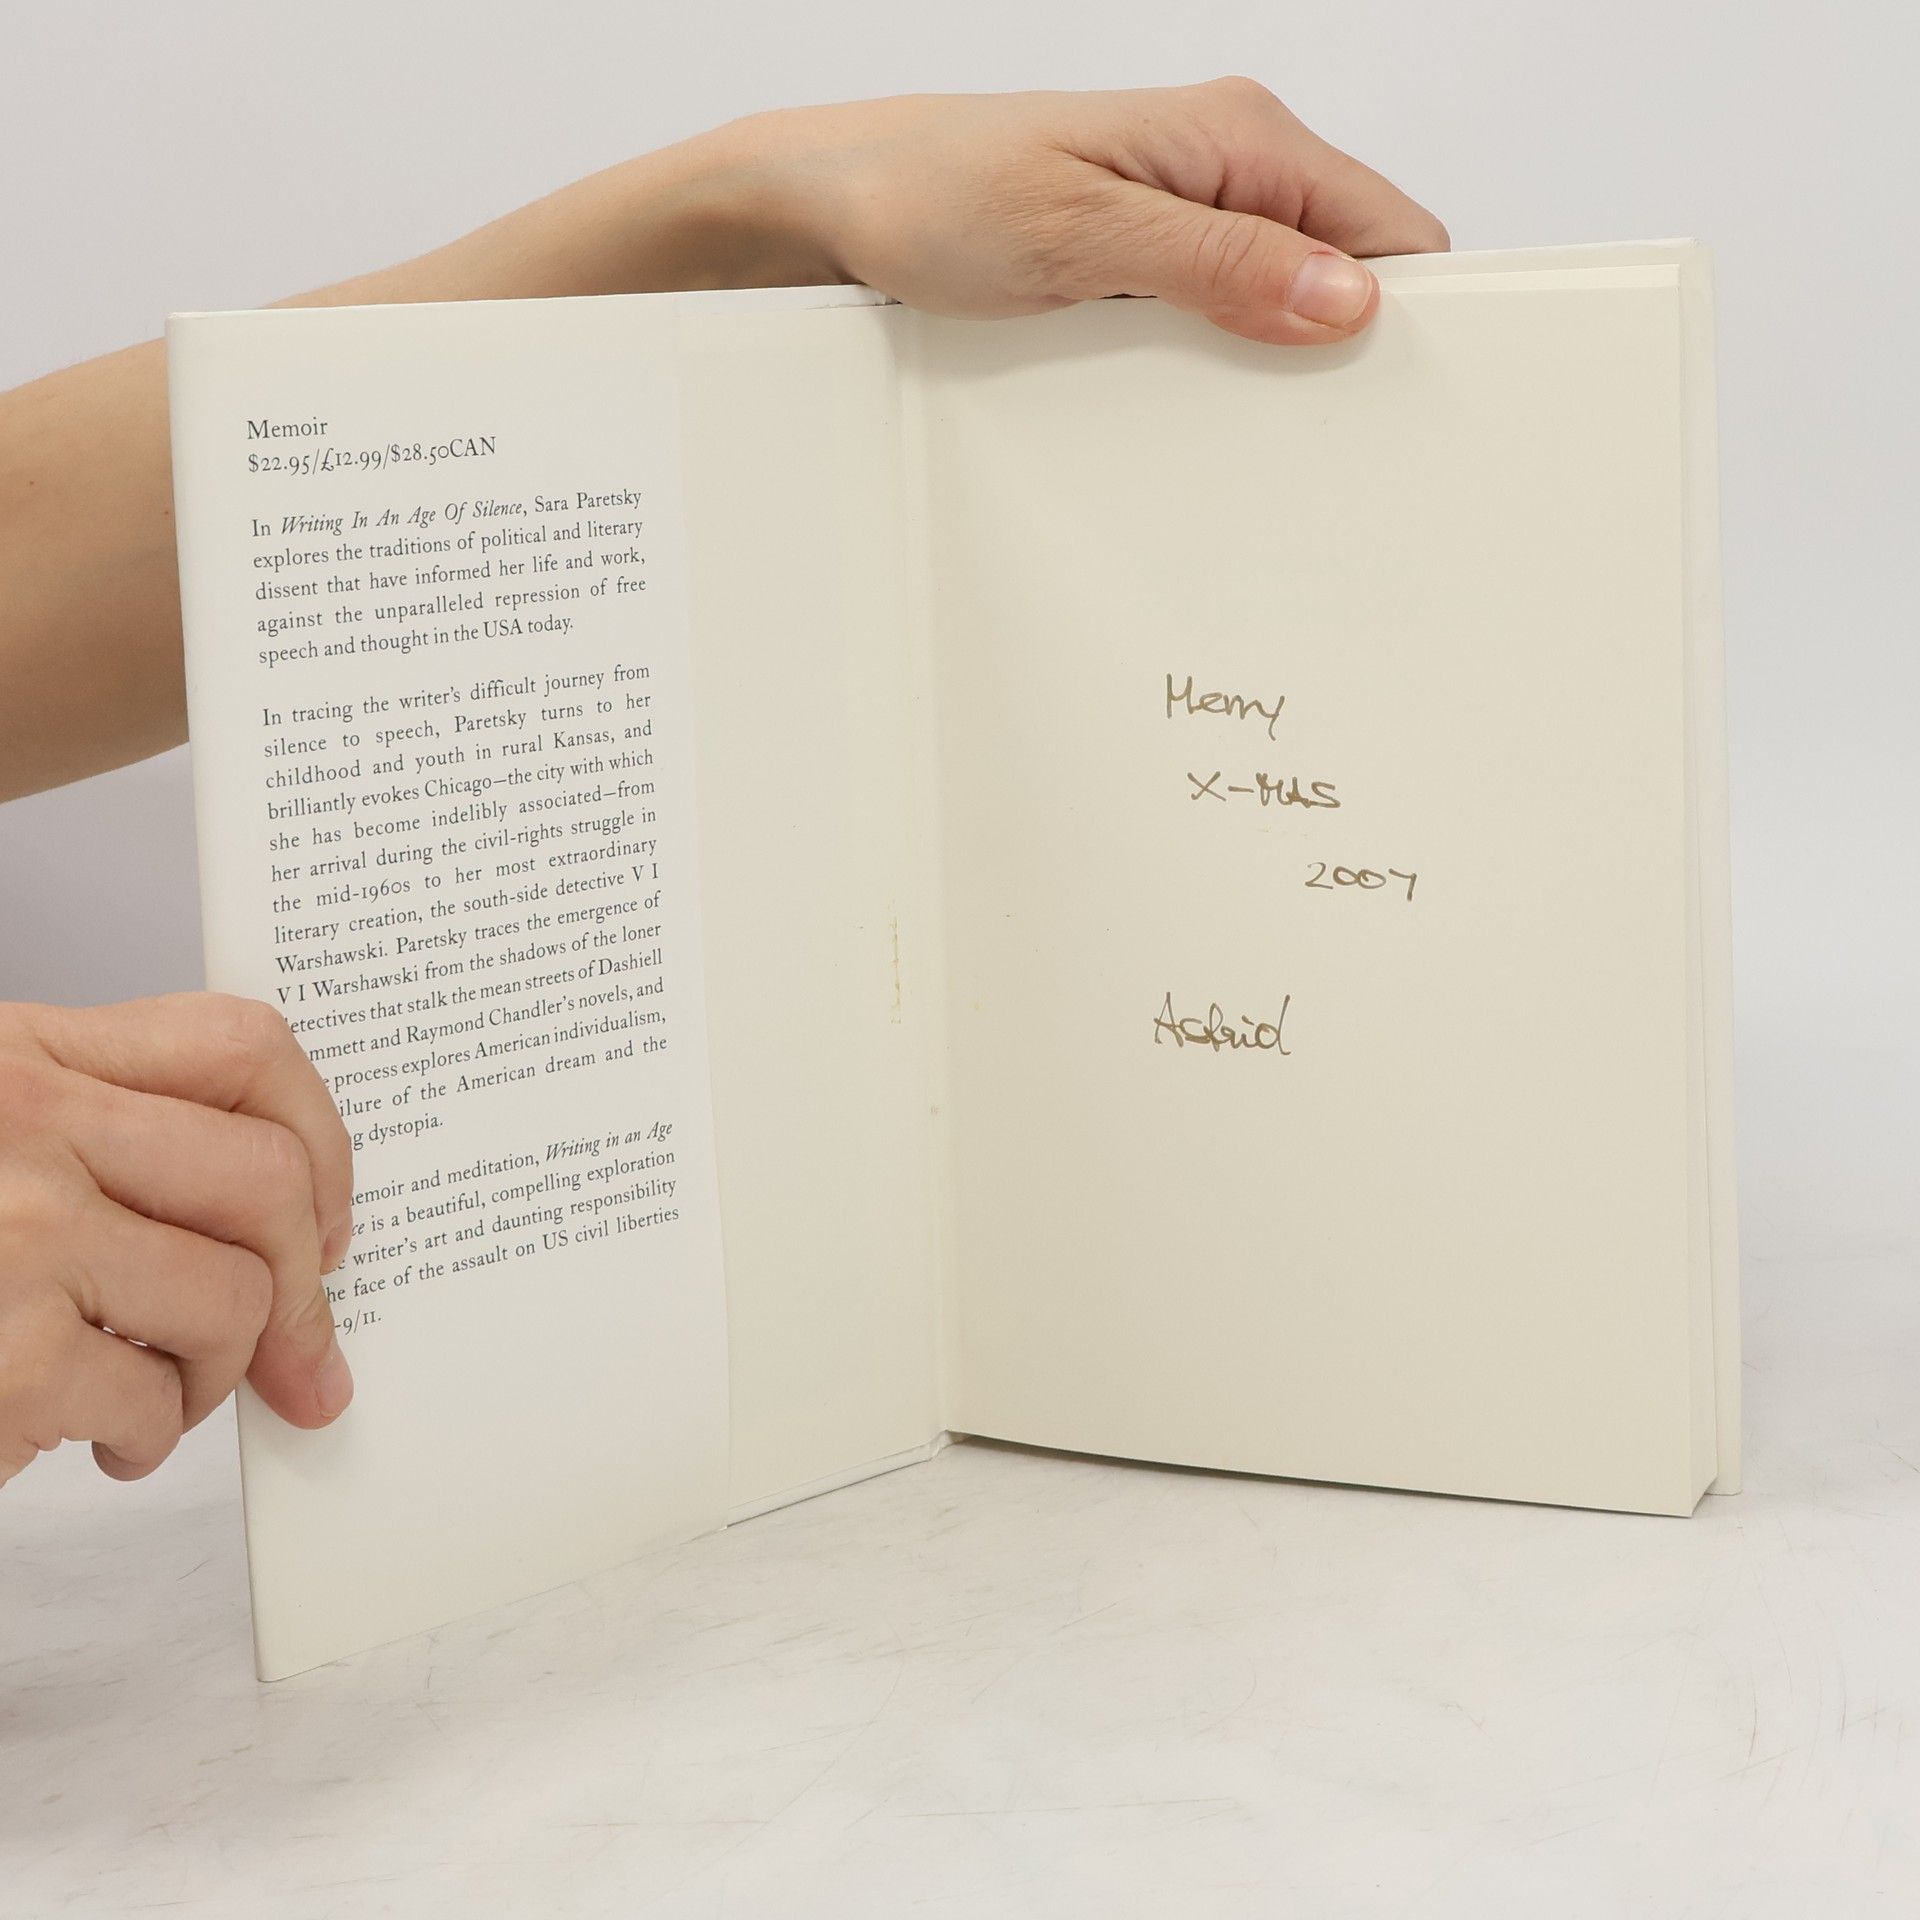 Memoir
$22.95/£12.99/$28.50CAN
In Writing In An Age Of Silence, Sara Paretsky
explores the traditions of political and literary
dissent that have informed her life and work,
against the unparalleled repression of free
speech and thought in the USA today.
In tracing the writer's difficult journey from
silence to speech, Paretsky turns to her
childhood and youth in rural Kansas, and
brilliantly evokes Chicago—the city with which
she has become indelibly associated—from
her arrival during the civil-rights struggle in
the mid-1960s to her most extraordinary
literary creation, the south-side detective V I
Warshawski. Paretsky traces the emergence of
V I Warshawski from the shadows of the loner
etectives that stalk the mean streets of Dashiell
mmett and Raymond Chandler's novels, and
process explores American individualism,
ilure of the American dream and the
g dystopia.
emoir and meditation, Writing in an Age
ce is a beautiful, compelling exploration
writer's art and daunting responsibility
he face of the assault on US civil liberties
-9/11.
Merry
X-MAS
2007
Astrid